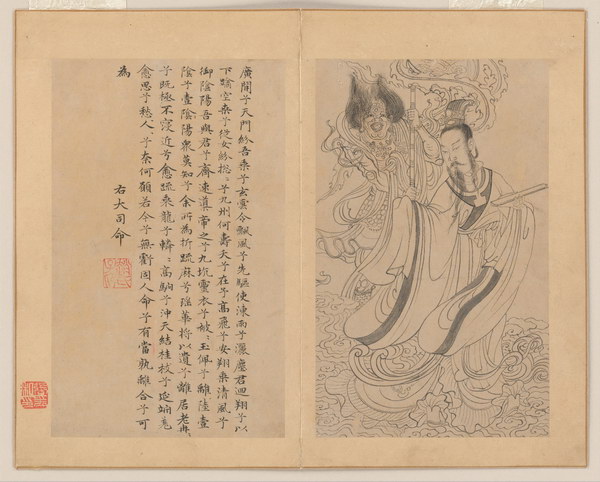 廣開兮天門紛吾乘兮玄雲令飄風兮先驅使涷雨兮灑塵君迴翔兮以
下踰空桑兮從女紛揔〻兮九州何壽夭兮在予高飛兮安翔乘清風兮
御陰陽吾與君兮齋速導帝之兮九坑靈衣兮被〻玉佩兮離陸壹
陰兮壹陽衆莫知兮余所為折疏麻兮瑤華將以遺兮離居老冉〻
兮既極不寖近兮愈疏乘龍兮轔〻高駝兮沖天結桂枝兮延竚羌
愈思兮愁人〻兮奈何願若今兮無虧固人命兮有當孰離合兮可
為
右大司命